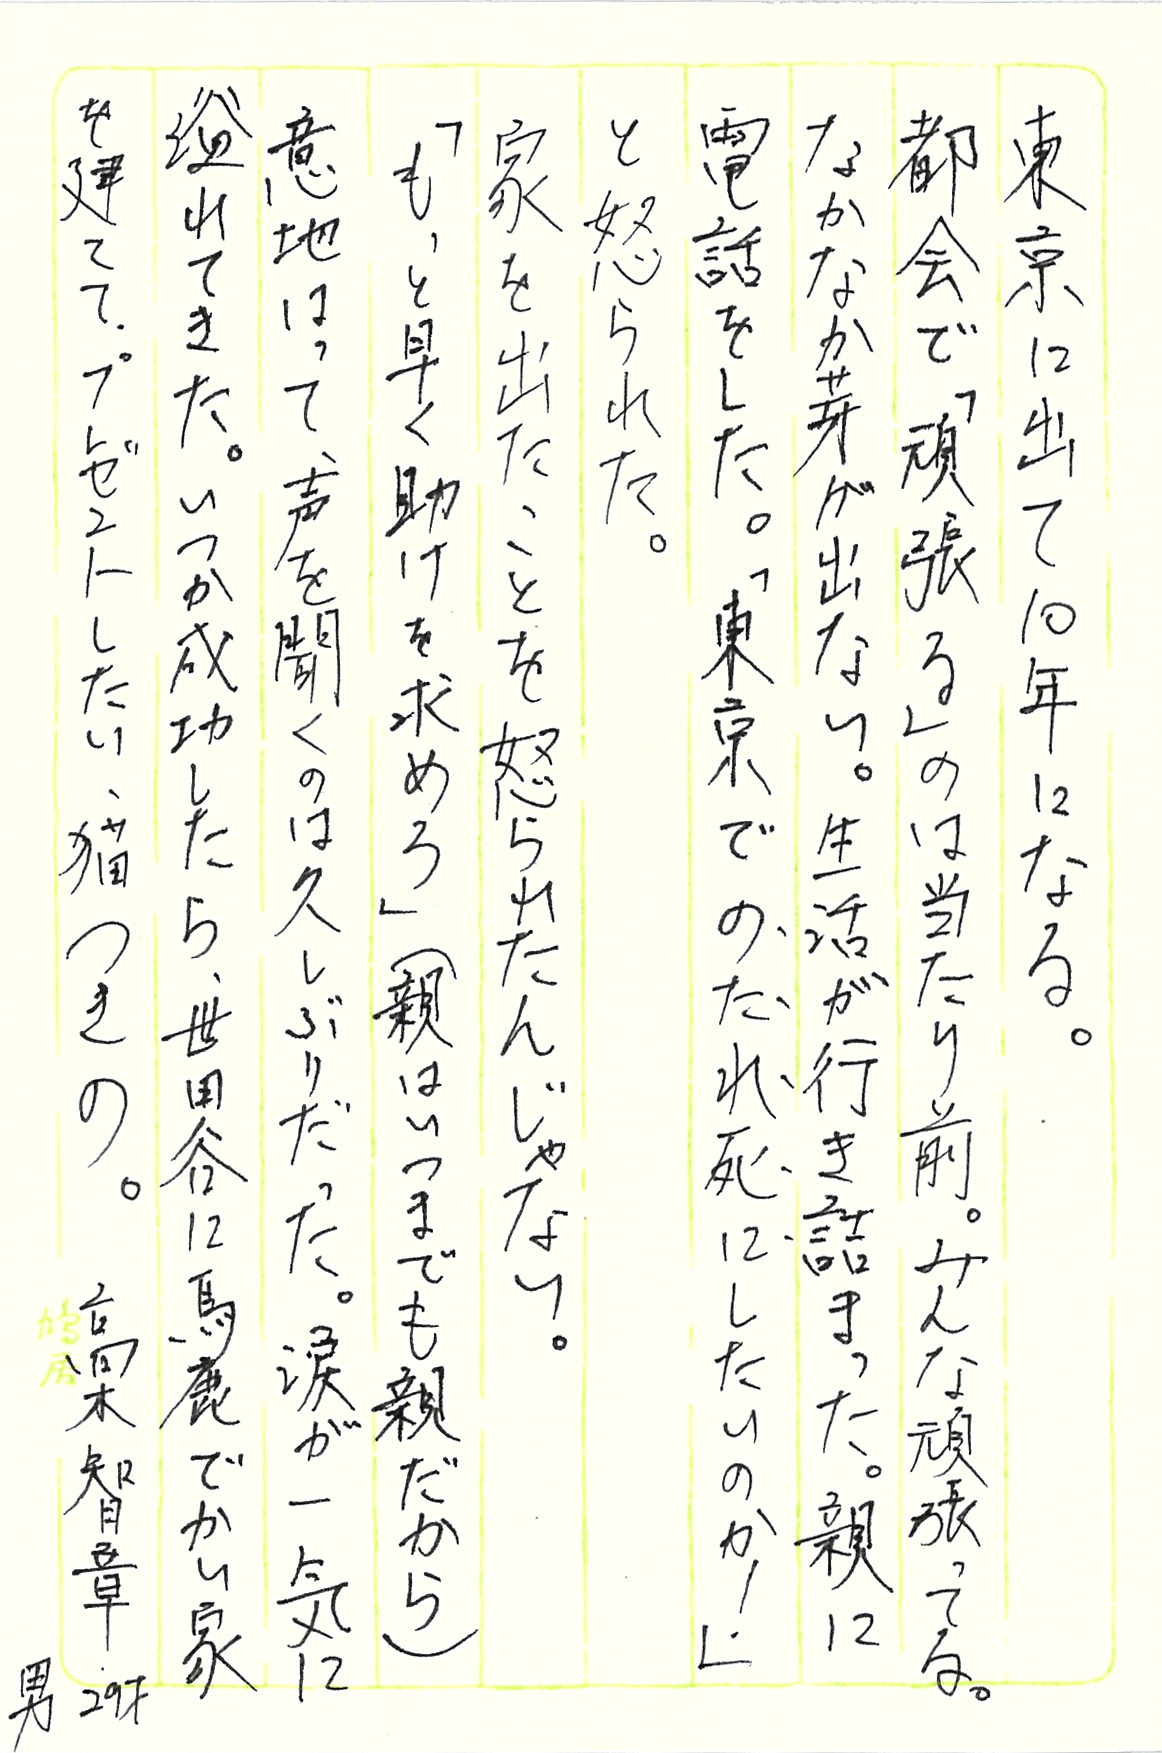 東京に出て10年になる。
都会で「頑張る」のは当たり前。みんな頑張ってる。
なかなか芽が出ない。生活が行き詰まった。親に
電話をした。「東京でのたれ死にしたいのか!」
と怒られた。
家を出たことを怒られたんじゃない。
「もっと早く助けを求めろ」(親はいつまでも親だから)
意地はって、声を聞くのは久しぶりだった。涙が一気に
溢れてきた。いつか成功したら、世田谷に馬鹿でかい家
を建てて、プレゼントしたい、猫つきの。 高木智章 29才
男
鳩居